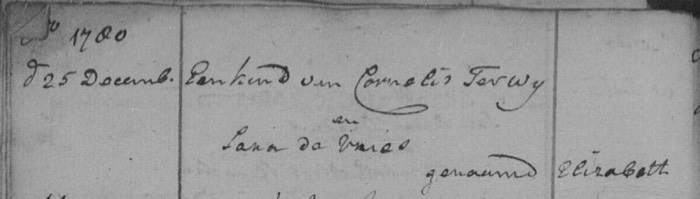 Ao 1780
d 25 Decemb. Een kind van Cornelis Terwy
en
Lana de Vries
genaamd Elizabett